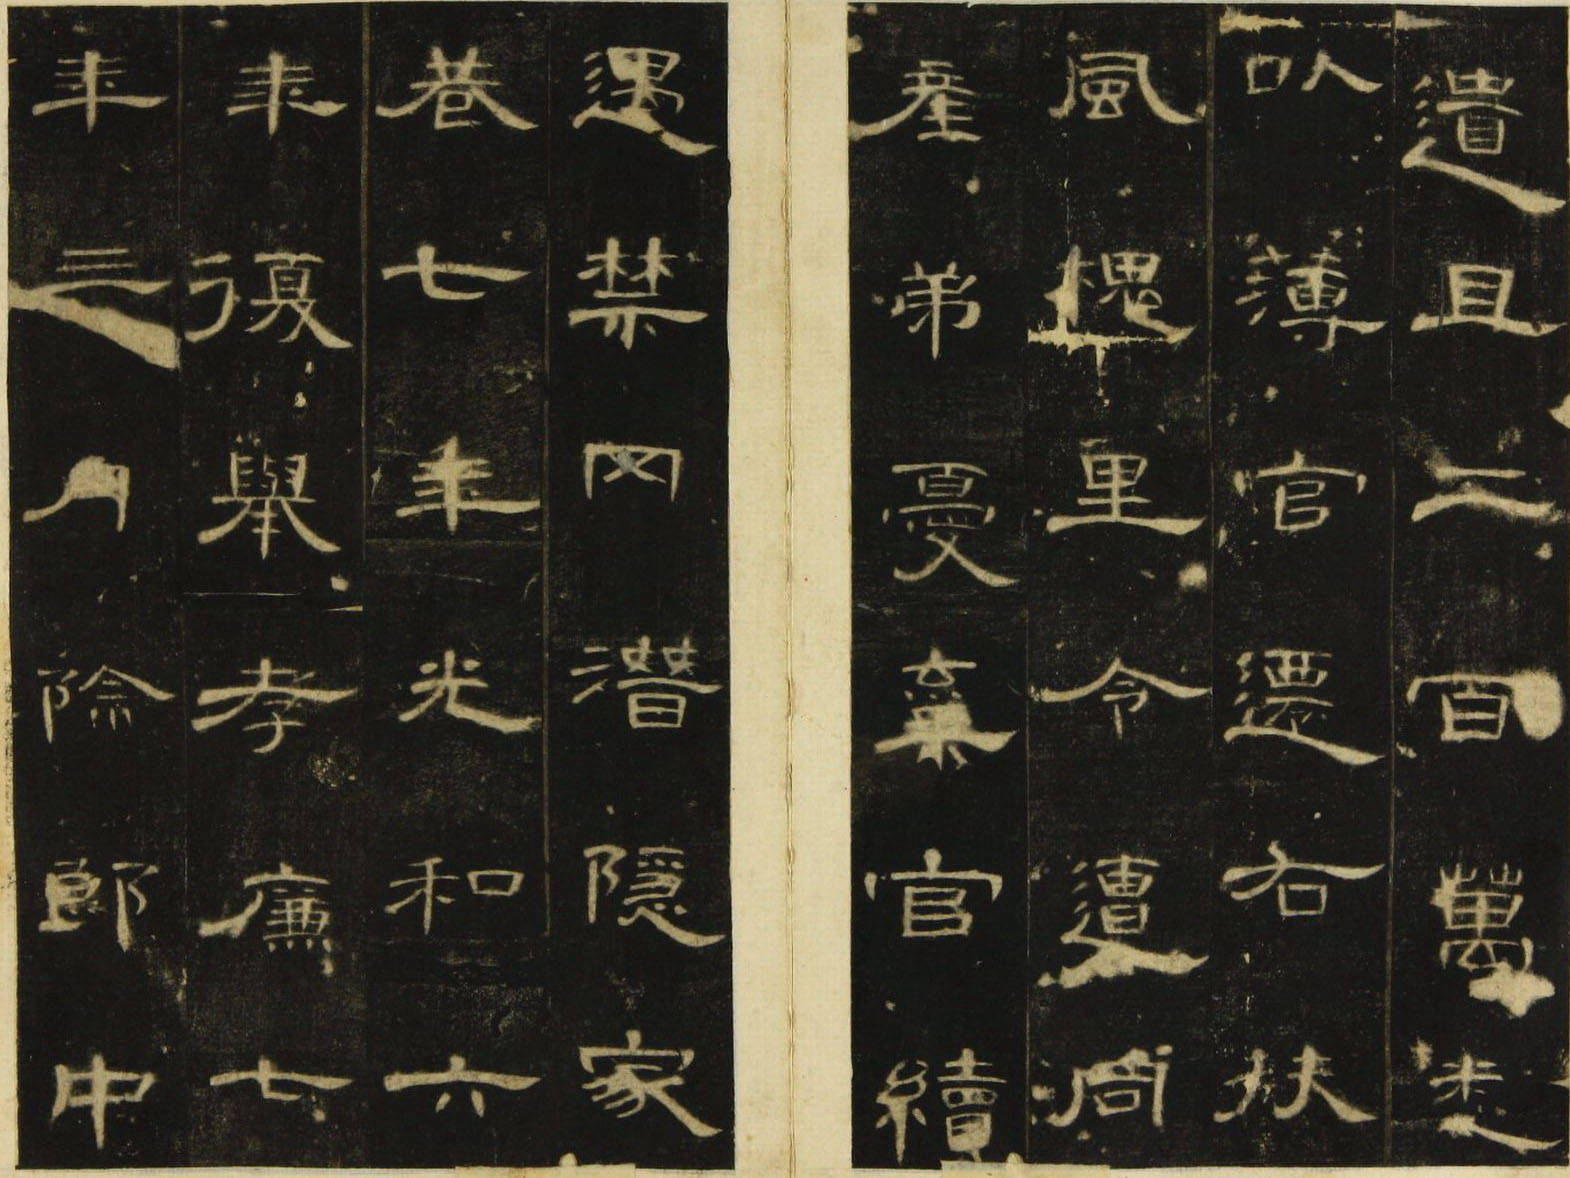 遺且二百萬悉
以薄官遷右扶
風槐里令遭同
產弟憂棄官續
遇禁网潛隱家
巷七年光和六
年復舉孝廉七
年三月除郎中